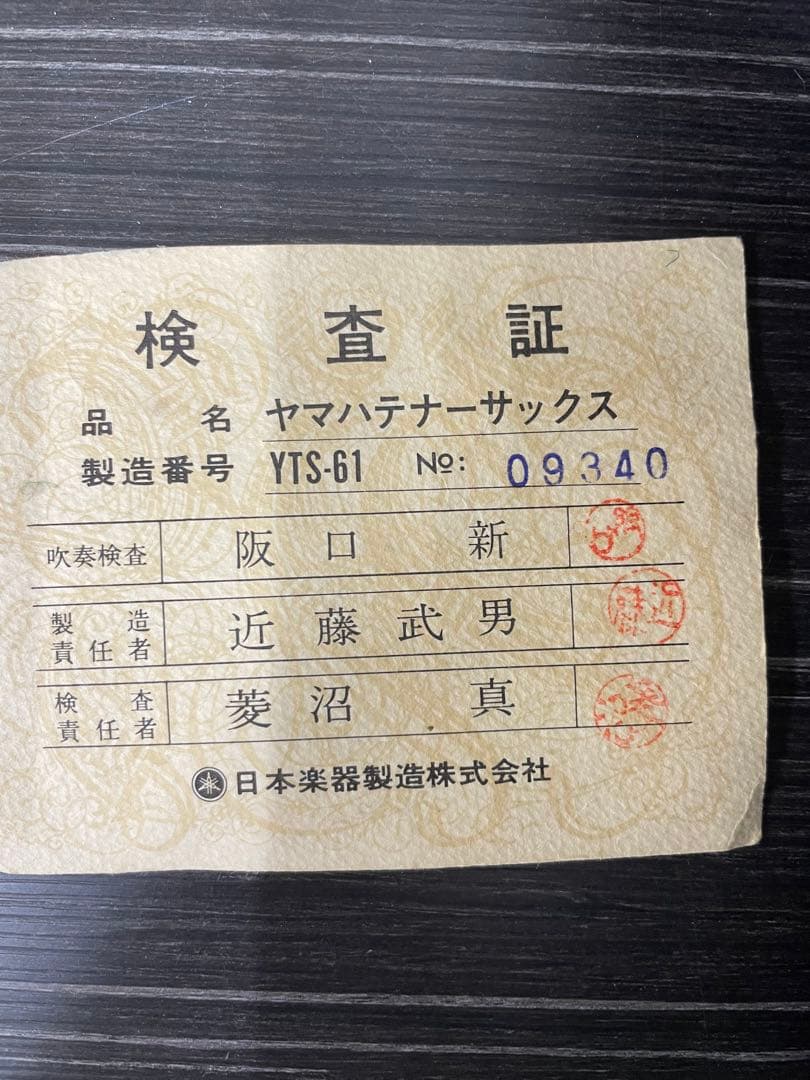 検査証
品名 ヤマハテナーサックス
製造番号 YTS-61 No: 09340
吹奏検査 阪口新
製造責任者 近藤武男
検査責任者 菱沼真
日本楽器製造株式会社